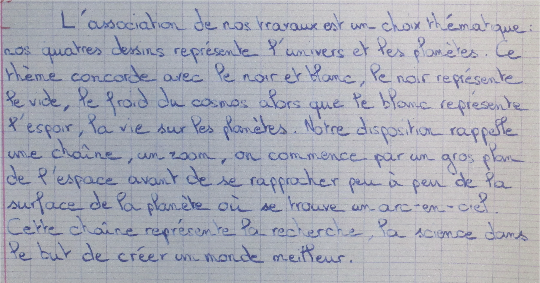 L'association de nos travaux est un choix thématique :
nos quatres dessins représente l'univers et les planètes. Ce
thème concorde avec le noir et blanc, le noir représente
le vide, le froid du cosmos alors que le blanc représente
l'espoir, la vie sur les planètes. Notre disposition rappelle
une chaîne, un zoom, on commence par un gros plan
de l'espace avant de se rapprocher peu à peu de la
surface de la planète où se trouve un arc-en-ciel.
Cette chaîne représente la recherche, la science dans
le but de créer un monde meilleur.